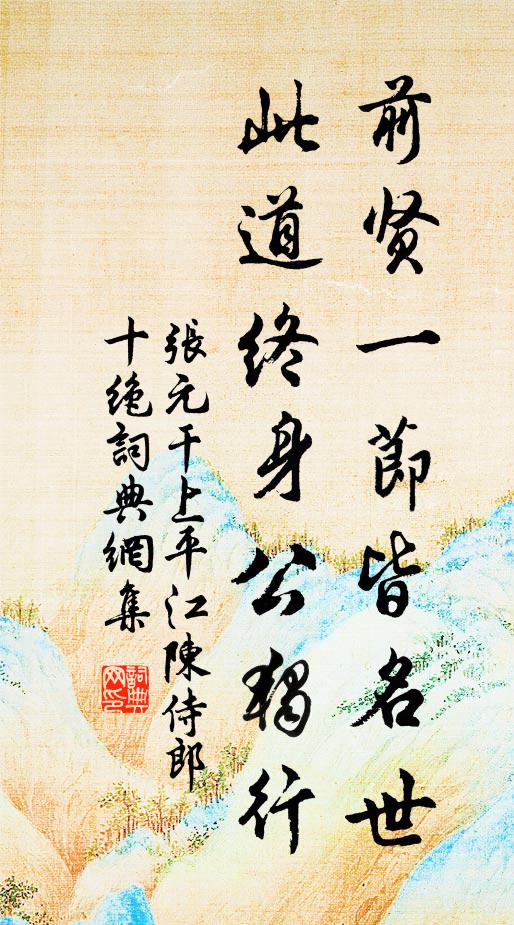 前贤一節皆名世
此道终身公独行
張元干上平江陳侍郎
十绝詞典網集
詞典网印